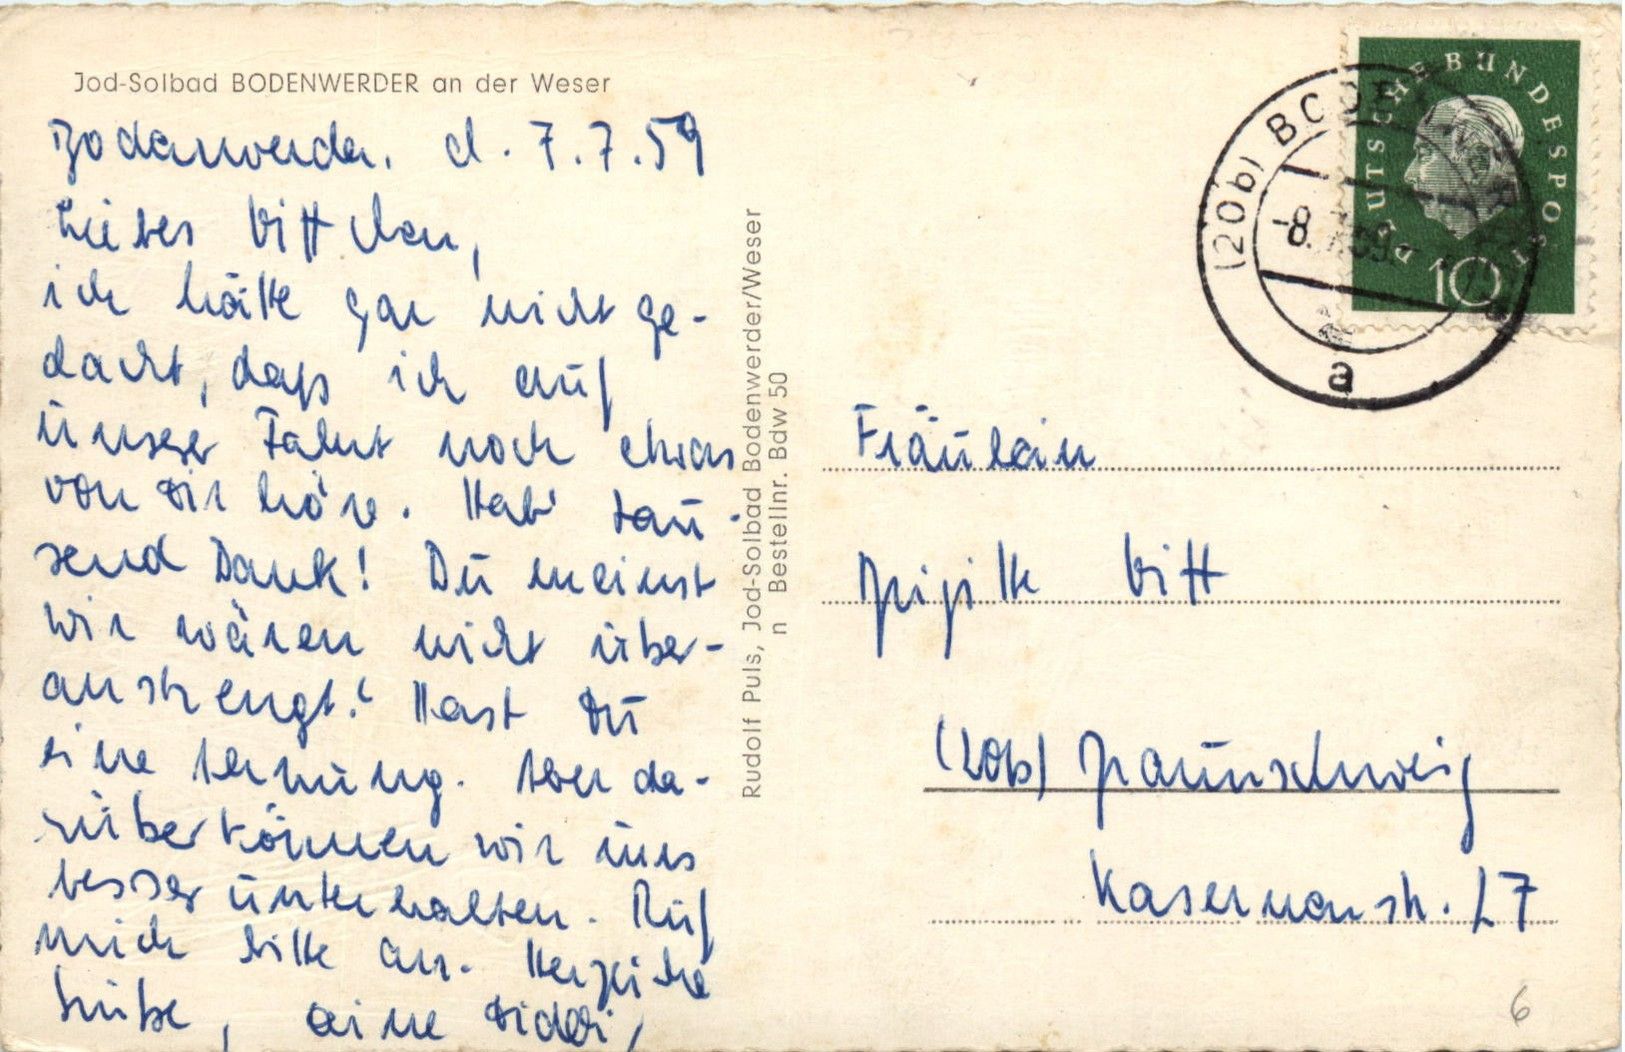 Jod-Solbad BODENWERDER an der Weser
Bodenwerder. d. 7.7.59
Liebes Vittchen,
ich hätte gar nicht ge-
dacht, daß ich auf
unser Fahrt noch etwas
von Dir höre. Hab' tau-
send Dank! Du meinst
wir wären nicht über-
anstrengt! Hast Du
eine Ahnung. Aber da-
rüber können wir uns
besser unterhalten. Ruf
mich bitte an. Herzliche
Grüße,
Rudolf Puls, Jod-Solbad Bodenwerder/Weser
n Bestellnr. Bdw 50
DEUTSCHE BUNDESPOST
10
(20b) BODENWERDER
-8. 59.
a
Fräulein
Brigitte Vitt
(20b) Braunschweig
Kasernenstr. 27
6